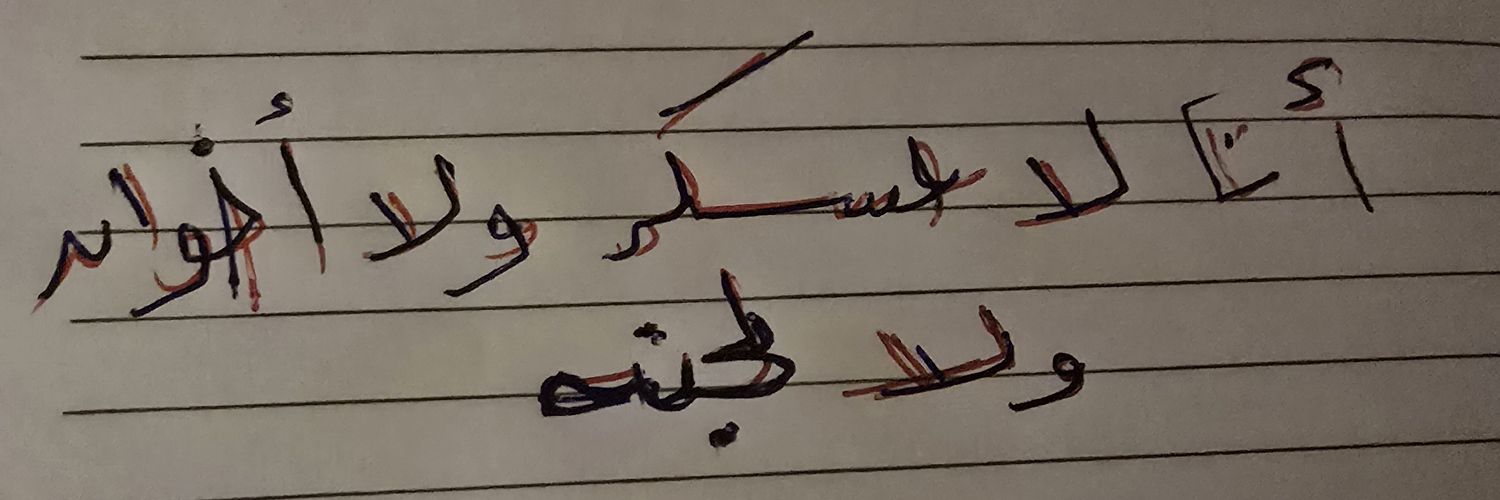 أنا لا عسكر ولا أخوان
ولا لجنه